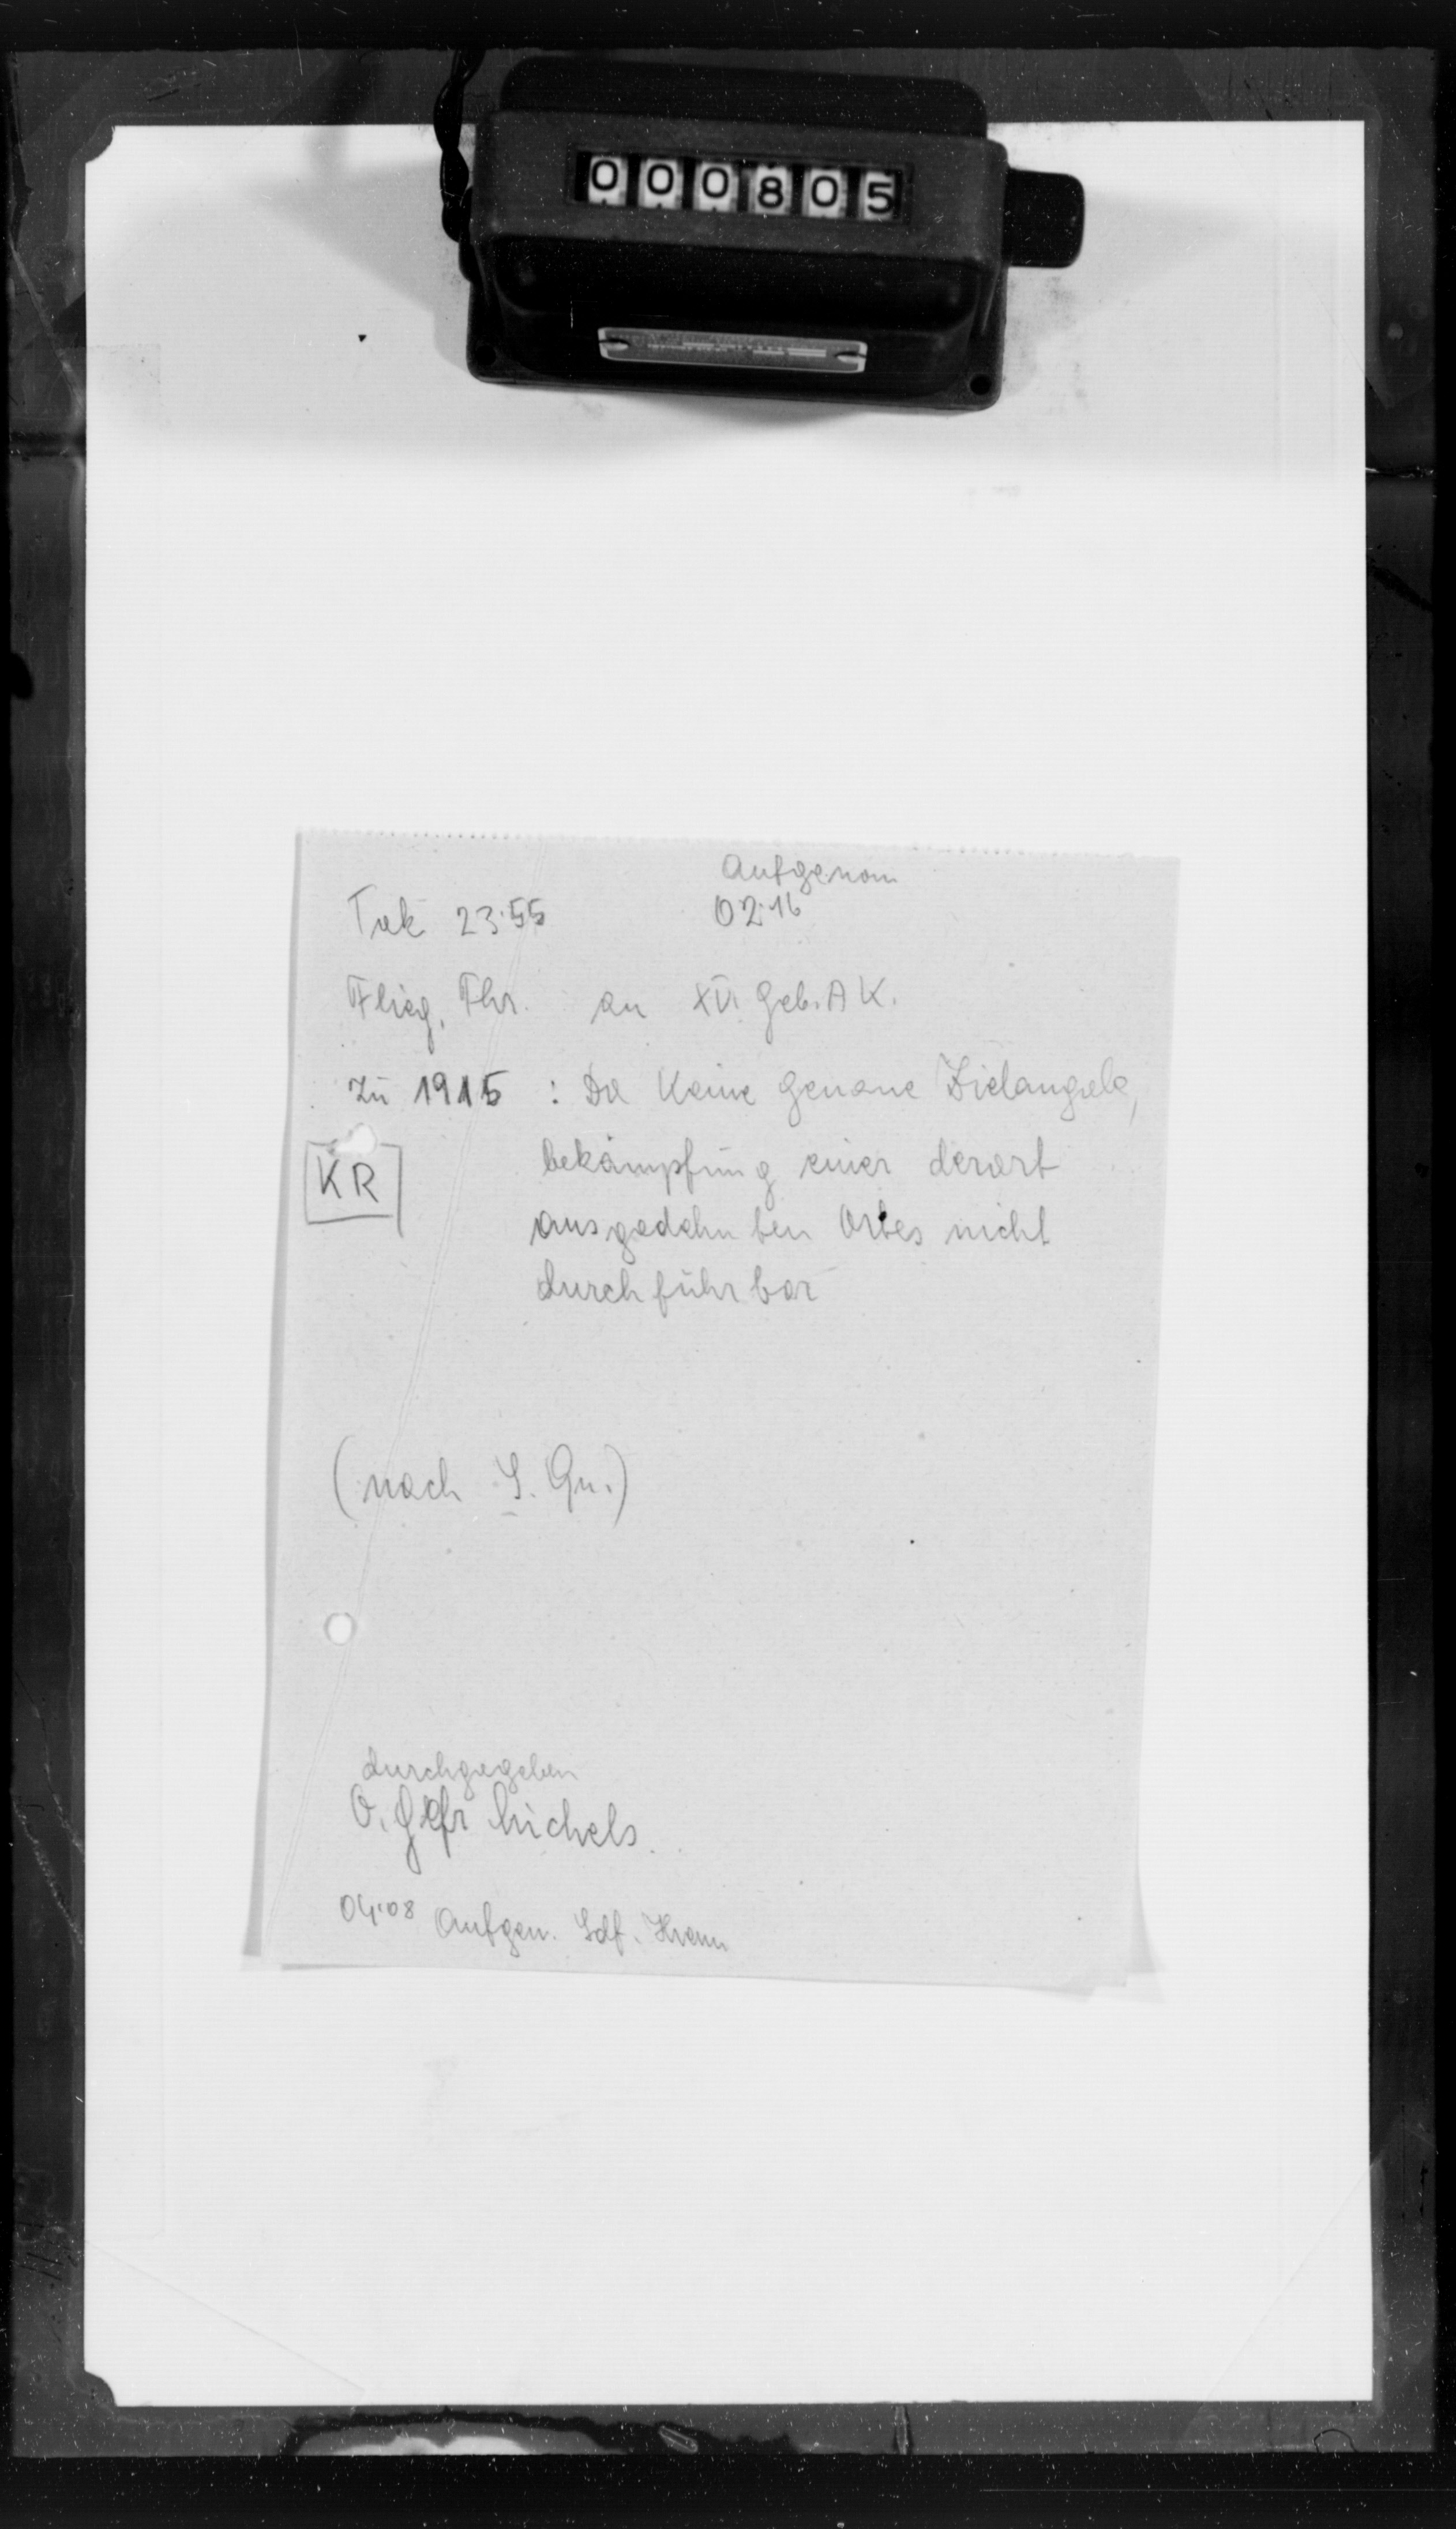 000805
Aufgenom
Tak 23:55 02:16
Flieg. Fhr. an XV. Geb. A K.
Zu 1915 : Da keine genaue Zielangabe,
KR
bekämpfung einer derart
ausgedehnten Ortes nicht
durchführbar
(nach S. Qu.)
durchgegeben
O. Gefr Michels.
04:08 Aufgen. Sdf.